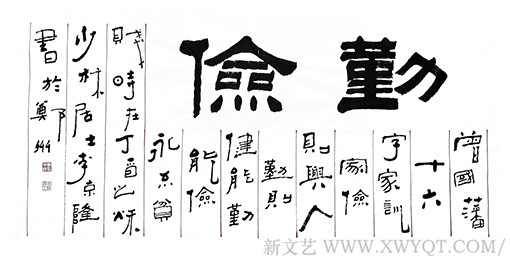 勤儉
曾國藩
十六
字家訓
家儉
則興人
勤則
健能勤
能儉
永不貧
賤時在丁酉之秋
少林居士李京隆
書於鄭州
新文艺 WWW.XWYQT.COM